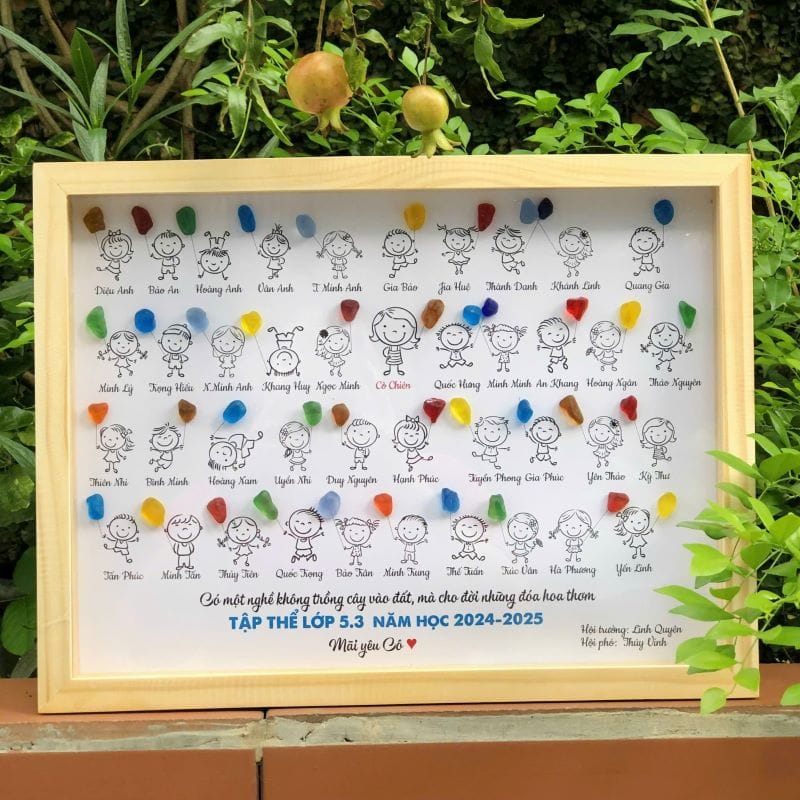 Diệu Anh Bảo An Hoàng Anh Vân Anh T Minh Anh Gia Bảo Jia Huê Thành Danh Khánh Linh Quang Gia
Minh Lý Trọng Hiếu N.Minh Anh Khang Huy Ngọc Minh Cô Chiên Quốc Hưng Minh Minh An Khang Hoàng Ngân Thảo Nguyên
Thiên Nhi Bình Minh Hoàng Nam Uyển Nhi Duy Nguyên Hạnh Phúc Tuyển Phong Gia Phúc Yên Thảo Kỳ Thư
Tấn Phúc Minh Tấn Thủy Tiên Quốc Trọng Bảo Trân Minh Trung Thế Tuấn Trúc Vân Hà Phương Yến Linh
Có một nghề không trồng cây vào đất, mà cho đời những đóa hoa thơm
TẬP THỂ LỚP 5.3 NĂM HỌC 2024-2025
Mãi yêu Cô ♥
Hội trưởng: Linh Quyên
Hội phó: Thúy Vinh